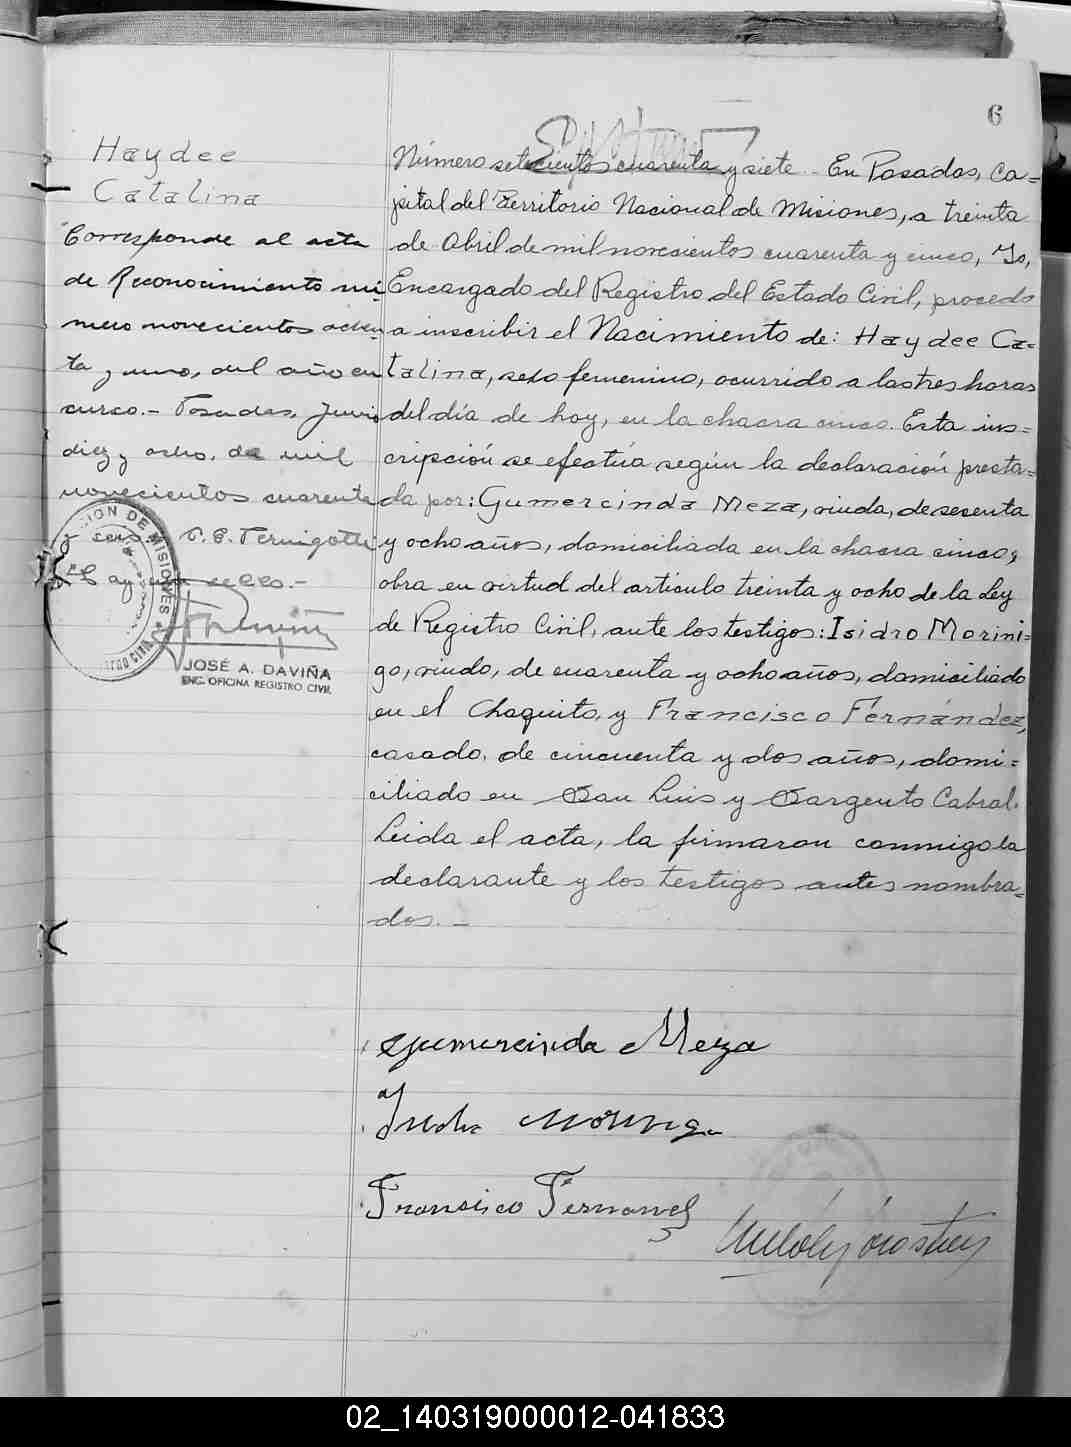 6
Haydee
Catalina
Corresponde al acta
de Reconocimiento nú-
mero novecientos ochen-
ta y uno, del año en
curso.- Posadas, Junio
diez y ocho, de mil
novecientos cuarenta
y seis.
ION DE MISIONES
JOSÉ A. DAVIÑA
ENC. OFICINA REGISTRO CIVIL
Número setecientos cuarenta y siete.- En Posadas, Ca=
pital del Territorio Nacional de Misiones, a treinta
de Abril de mil novecientos cuarenta y cinco, Yo,
Encargado del Registro del Estado Civil, procedo
a inscribir el Nacimiento de: Haydee Ca=
talina, sexo femenino, ocurrido a las tres horas
del día de hoy, en la chacra cinco. Esta ins=
cripción se efectúa según la declaración presta=
da por: Gumercinda Meza, viuda, de sesenta
y ocho años, domiciliada en la chacra cinco,
obra en virtud del artículo treinta y ocho de la Ley
de Registro Civil, ante los testigos: Isidro Morini=
go, viudo, de cuarenta y ocho años, domiciliado
en el Chaquito, y Francisco Fernández,
casado, de cincuenta y dos años, domi=
ciliado en San Luis y Sargento Cabral.
Leida el acta, la firmaron conmigo la
declarante y los testigos antes nombra=
dos.-
Gumercinda Meza
Francisco Fernandez
02_140319000012-041833